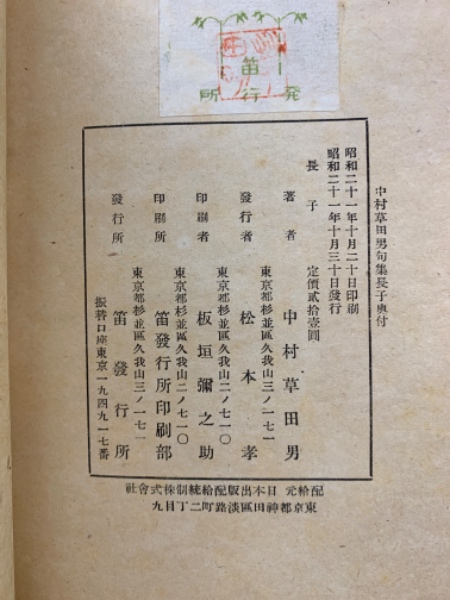 笛
発行所
中村草田男句集長子奥付
昭和二十一年十月二十日印刷
昭和二十一年十月三十日發行
長子　定價貳拾壹圓
著者　中村草田男
東京都杉並區久我山三ノ一七一
發行者　松本孝
東京都杉並區久我山二ノ七一〇
印刷者　板垣彌之助
東京都杉並區久我山二ノ七一〇
印刷所　笛發行所印刷部
東京都杉並區久我山三ノ一七一
發行所　笛發行所
振替口座東京一九四九一七番
配給元　日本出版配給統制株式會社
東京都神田區淡路町二丁目九